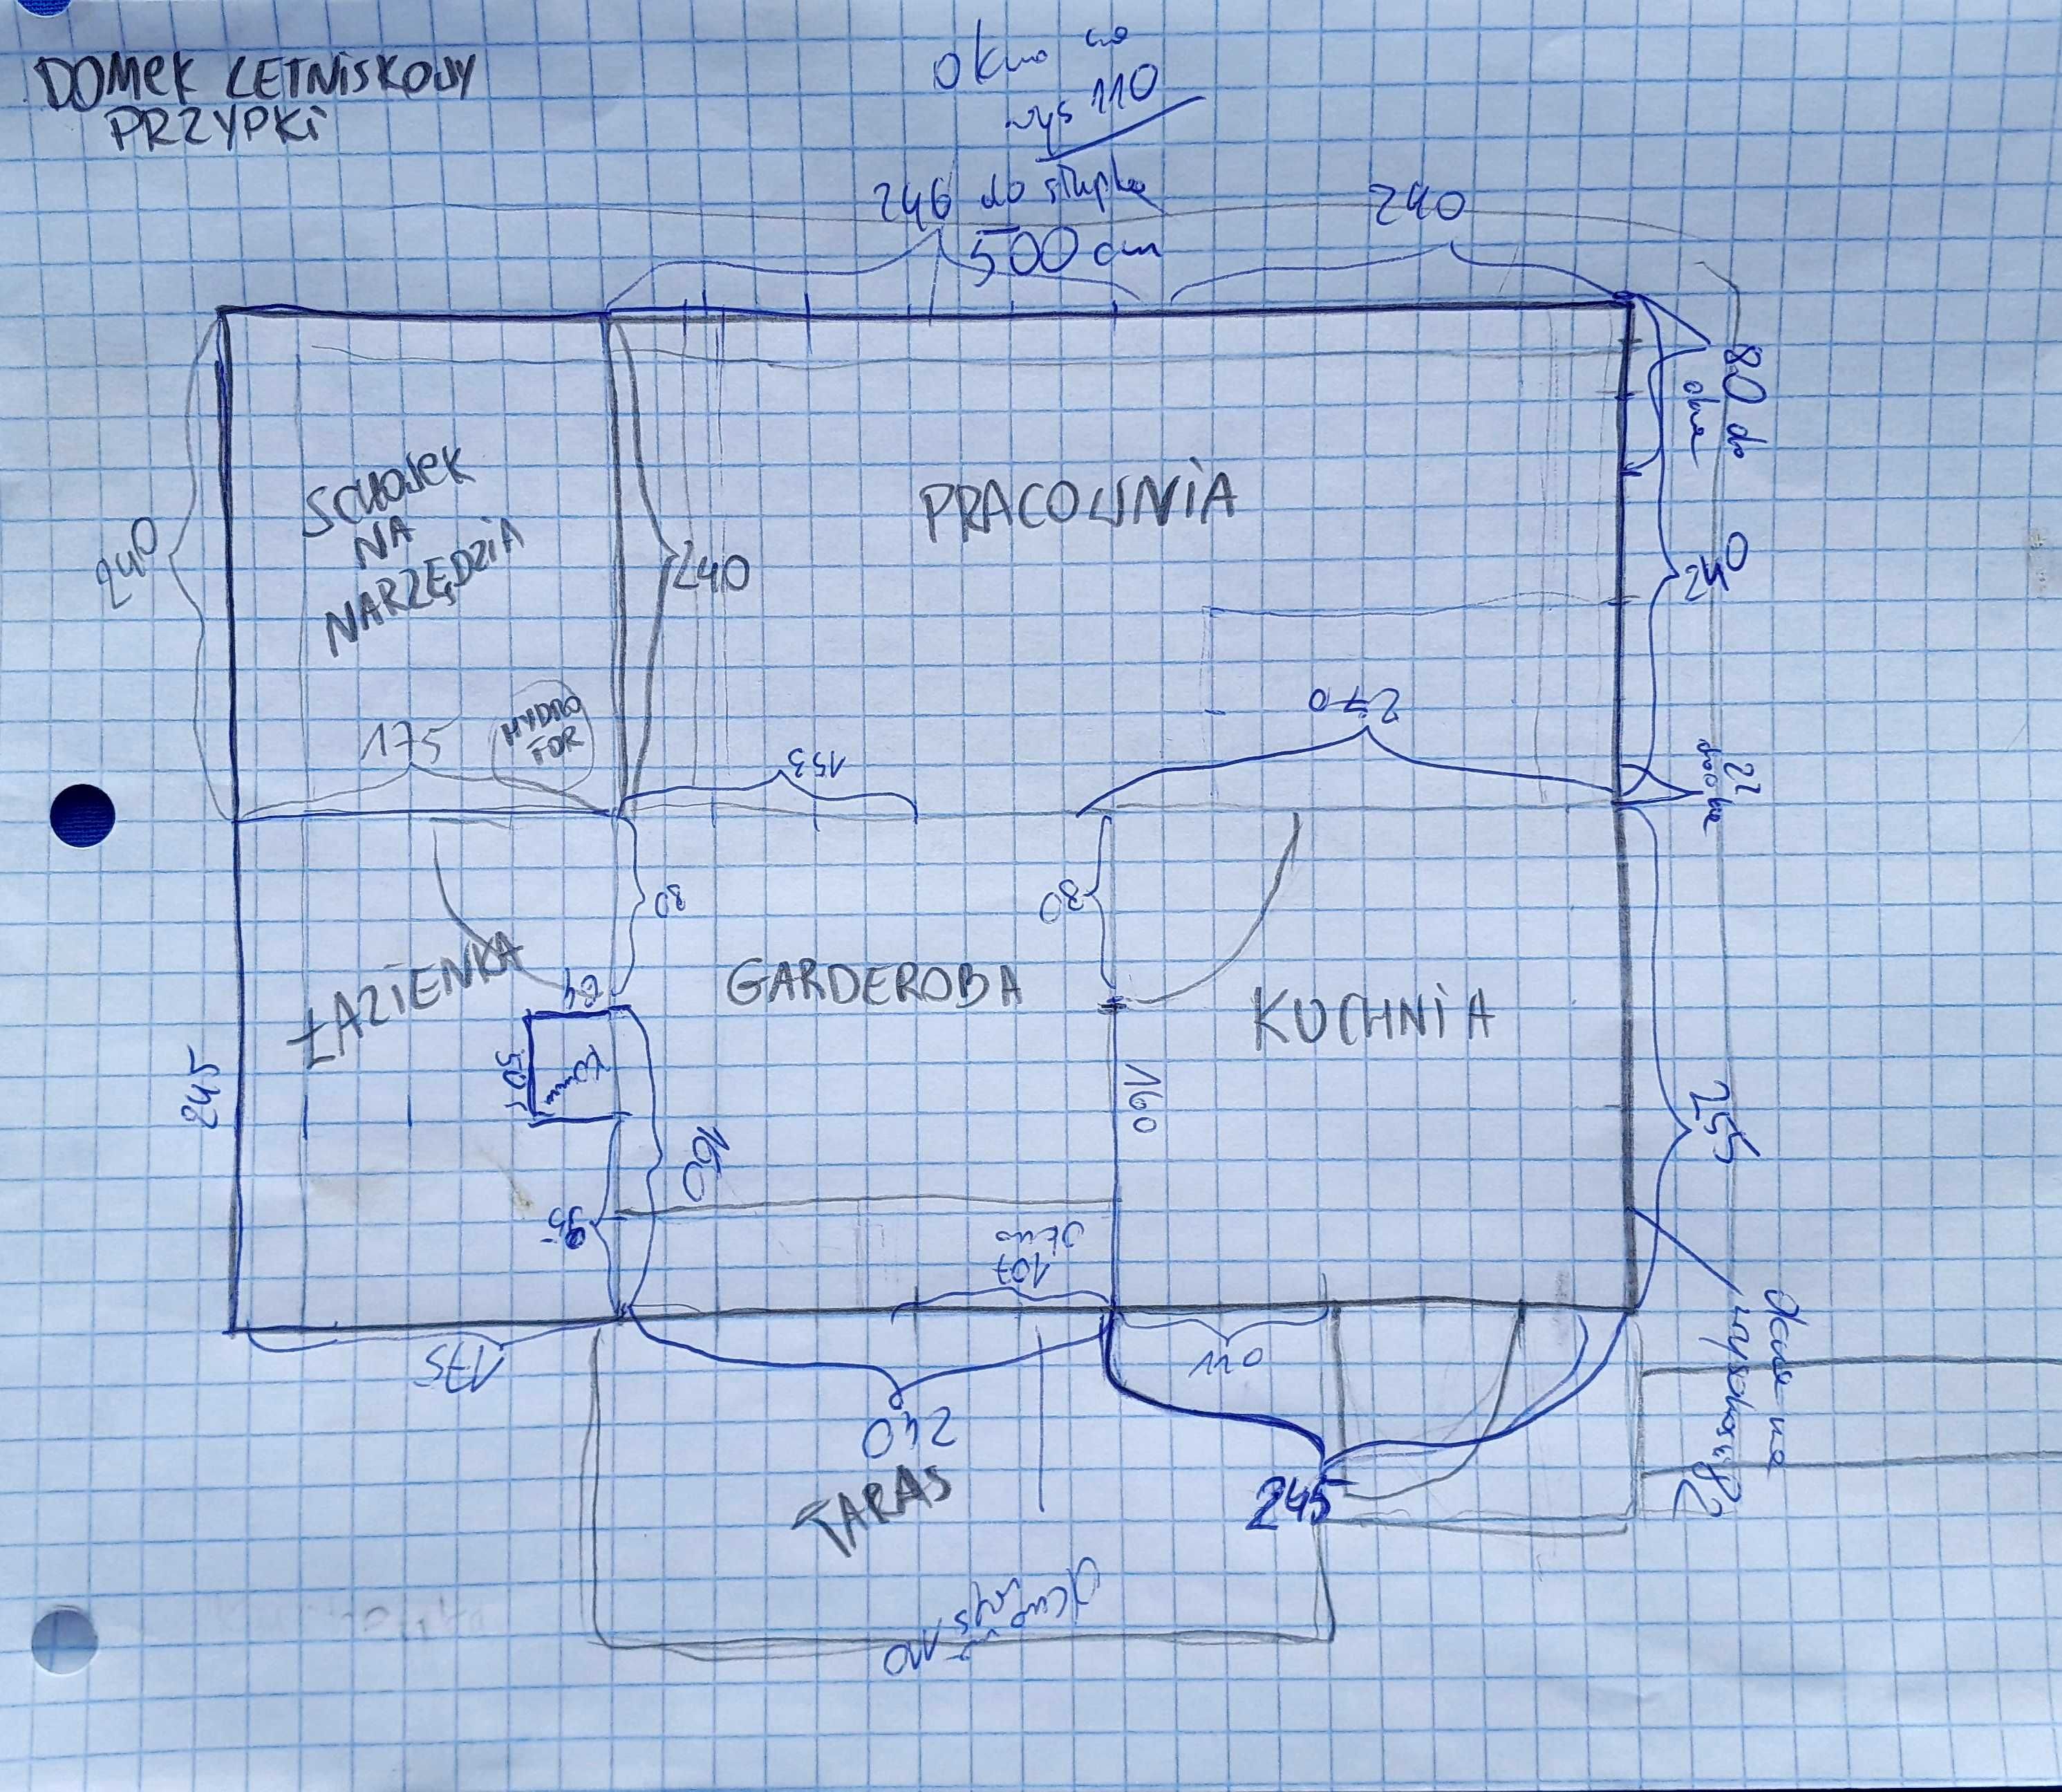 DOMEK LETNISKOWY
PRZYPKI
OKNO na
wys 110
246 do słupka
240
500 cm
80 do
okna
SCHOWEK
NA
NARZĘDZIA
PRACOWNIA
240
240
240
HYDRO
FOR
175
153
270
22
80
80
ŁAZIENKA
64
GARDEROBA
KUCHNIA
50
160
160
245
255
95
okno
107
175
110
240
TARAS
245
Okno na
wysokości 82
Okno
wys
110